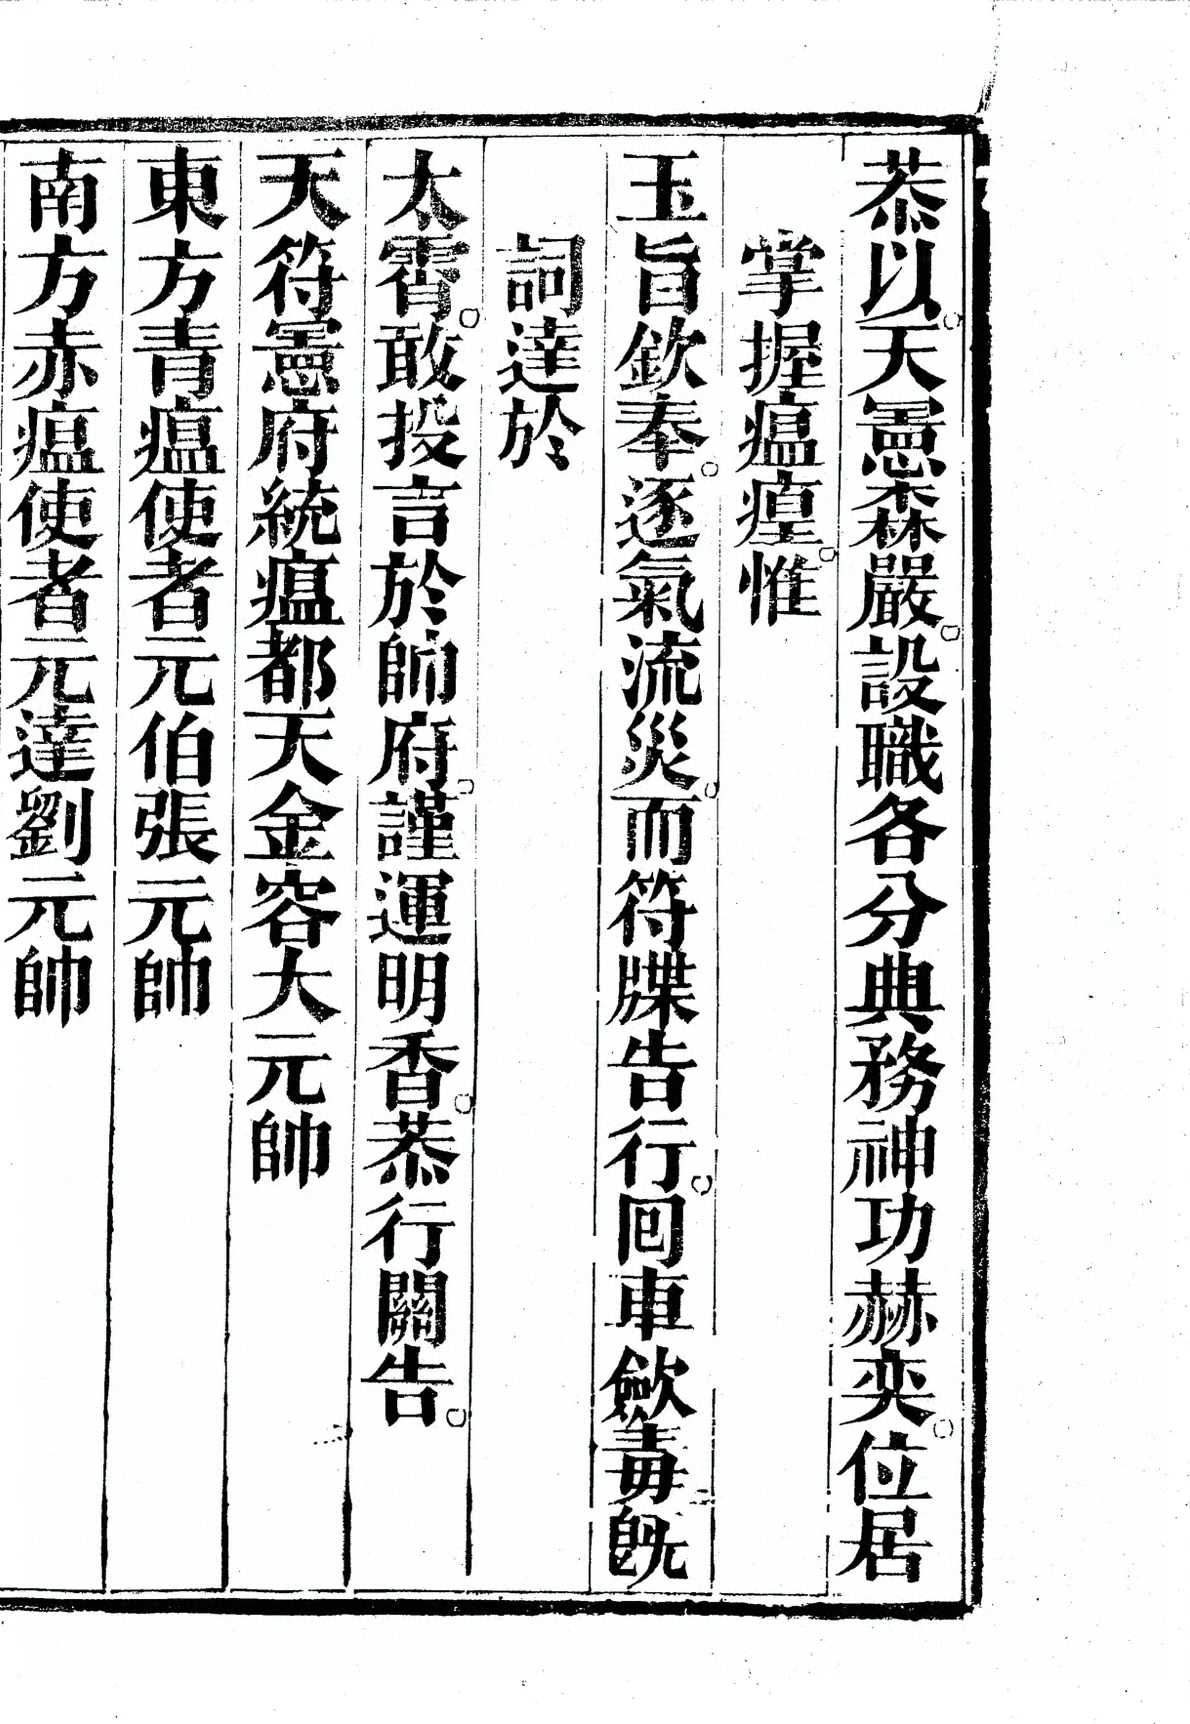 恭以。天憲森嚴。設職各分典務神功赫奕。位居
掌握瘟㾮。惟
玉旨欽奉。逐氣流災。而符牒告行。囘車歛毒旣
詞達於
太霄。敢投言於帥府。謹運明香。恭行關告。
天符憲府統瘟都天金容大元帥
東方青瘟使者元伯張元帥
南方赤瘟使者元達劉元帥